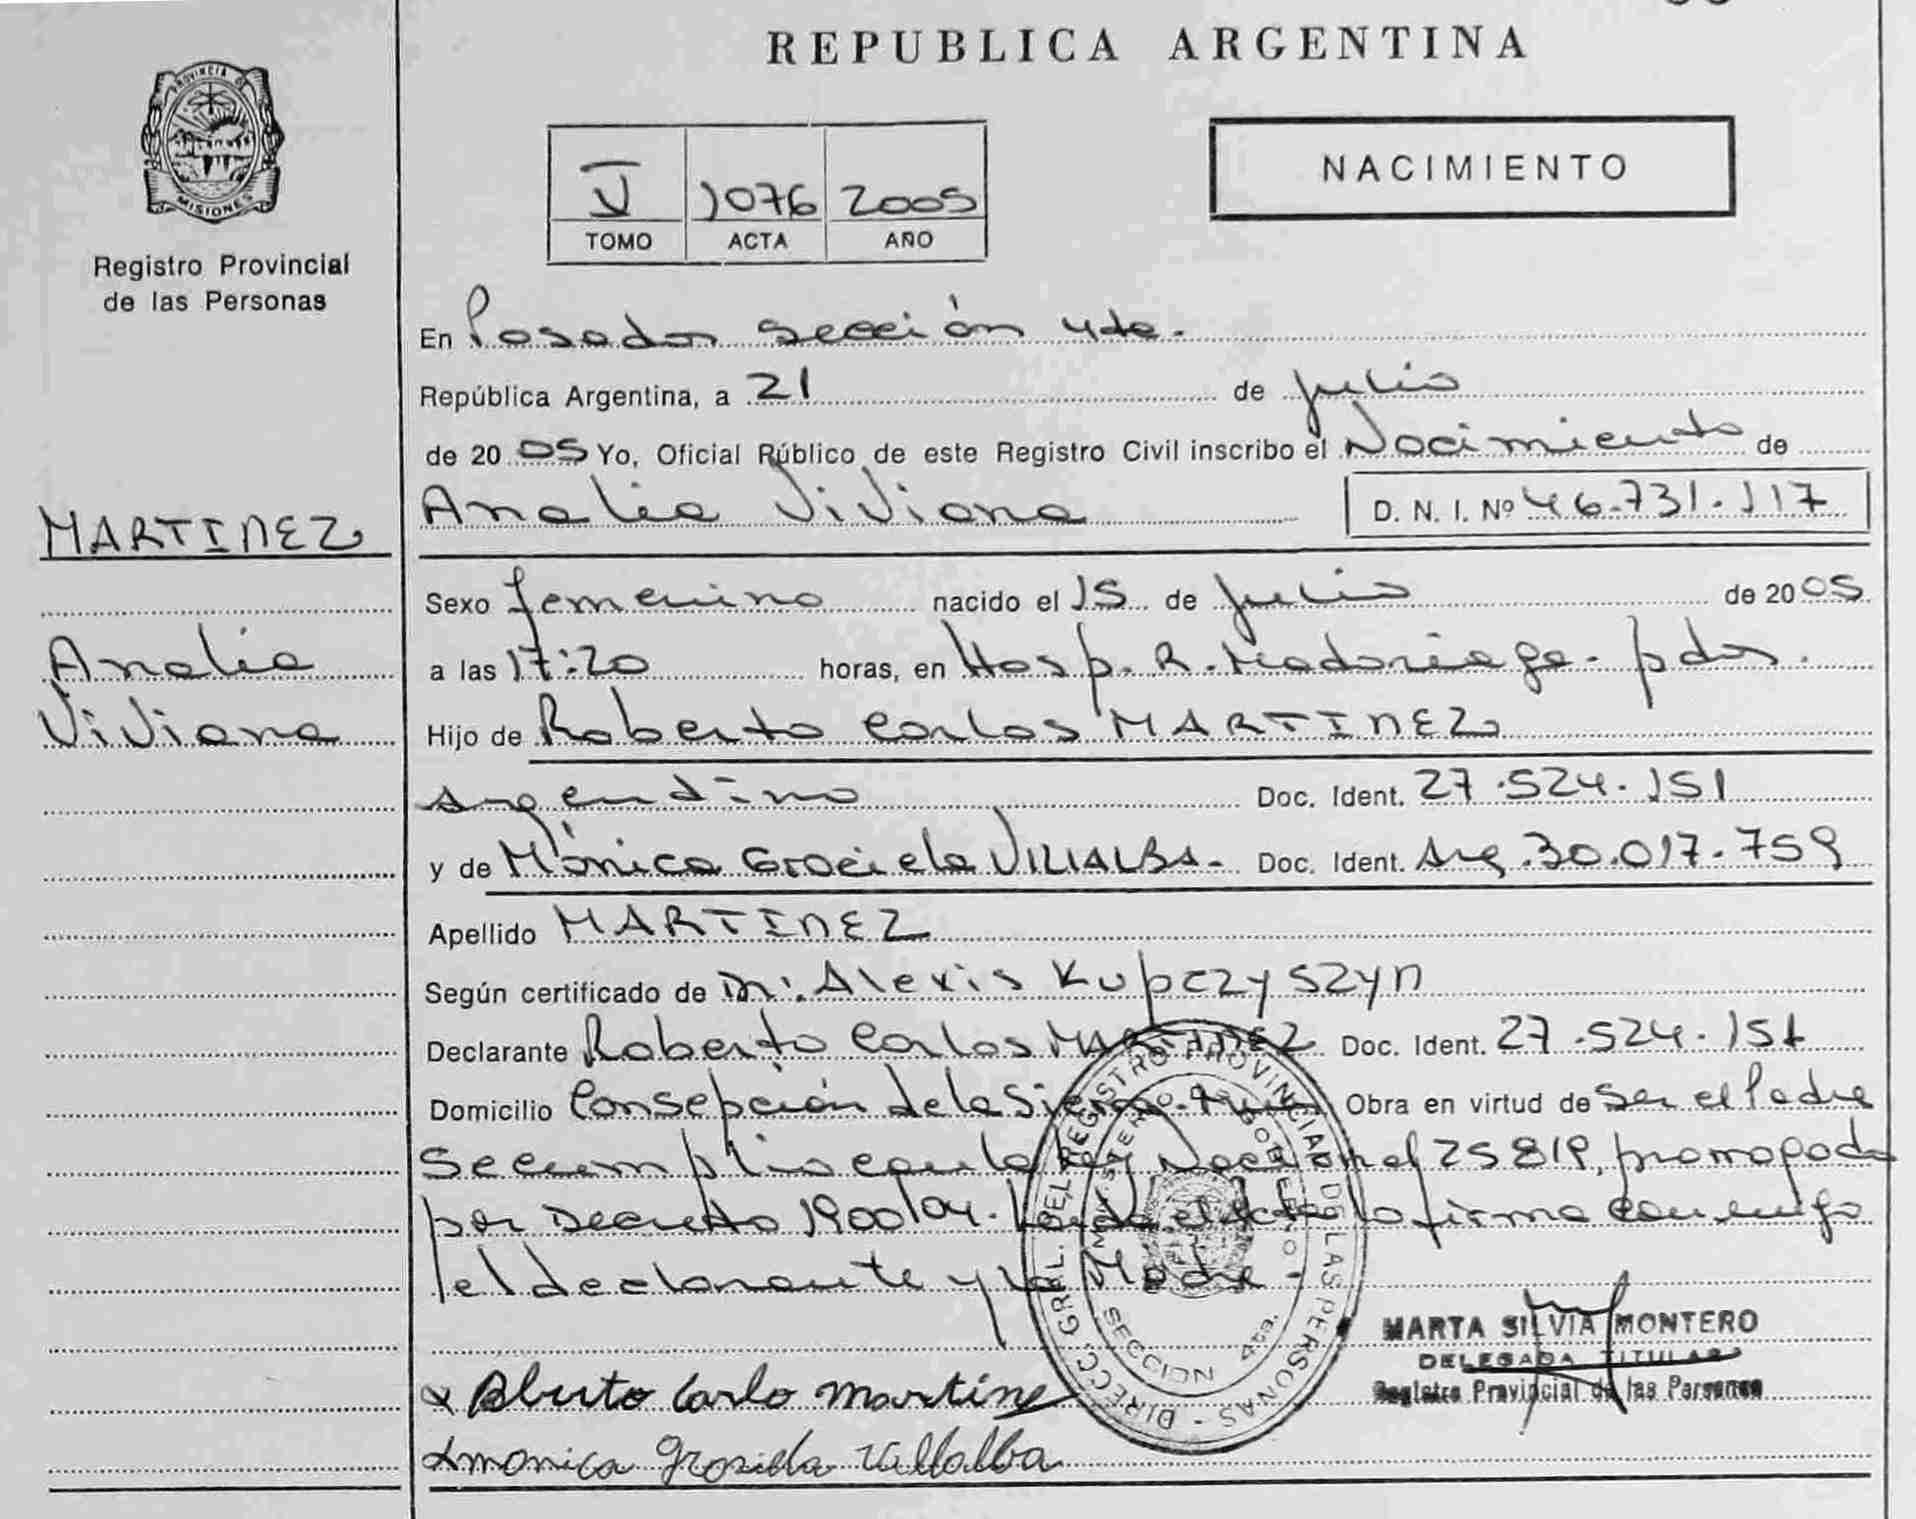 REPUBLICA ARGENTINA
PROVINCIA DE
MISIONES
Registro Provincial
de las Personas
V 1076 2005
TOMO ACTA AÑO
NACIMIENTO
En Posadas sección 4ta.
República Argentina, a 21 de julio
de 2005 Yo, Oficial Público de este Registro Civil inscribo el Nacimiento de
Analia Viviana D. N. I. Nº 46.731.117
MARTINEZ
Analia
Viviana
Sexo femenino nacido el 15 de julio de 2005
a las 17:20 horas, en Hosp. R. Madariaga - pdas.
Hijo de Roberto Carlos MARTINEZ
argentino Doc. Ident. 27.524.151
y de Mónica Graciela VILLALBA - Doc. Ident. Arg. 30.017.759
Apellido MARTINEZ
Según certificado de Dr. Alexis Kupczyszyn
Declarante Roberto Carlos MARTINEZ Doc. Ident. 27.524.151
Domicilio Consepción de la Sierra - Obra en virtud de ser el Padre
se cumplio con la Ley Nacional 25819, prorrogada
por Decreto 1900/04. Leida el acta la firma conmigo
el declarante y la Madre
DIRECC. GRAL. DEL REGISTRO PROVINCIAL DE LAS PERSONAS
MINISTERIO DE GOBIERNO
SECCION 4ta.
MARTA SILVIA MONTERO
DELEGADA TITULAR
Registro Provincial de las Personas
x Roberto Carlo Martine
x monica Grasiela Vallalba